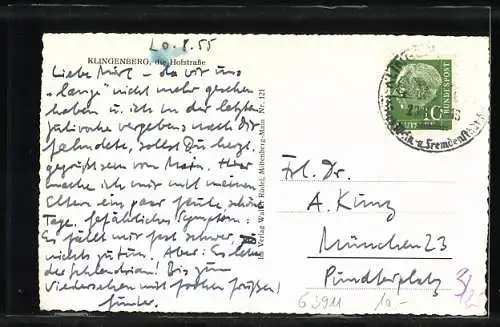 20.8.55
KLINGENBERG, die Hofstraße
Liebe – da wir uns
"lange" nicht mehr gesehen
haben u. ich in der letzten
Juliwoche vergebens nach Dir
fahndete, sollst Du herzl.
gegrüßt sein vom Main. Hier
mache ich mir mit meinen
Eltern ein paar schöne
Tage. Gefährliches Symptom:
Es fällt mir fast schwer,
nichts zu tun. Aber: Es lebe
der Schlendrian! Bis zum
Wiedersehen mit frohen Grüßen!
Günter.
Im Verlag Walter Rüdel, Miltenberg-Main Nr. 121
DEUTSCHE BUNDESPOST
10
u. Fremdenstadt
Frl. Dr.
A. Kunz
München 23
Pündterplatz
63911
10.-